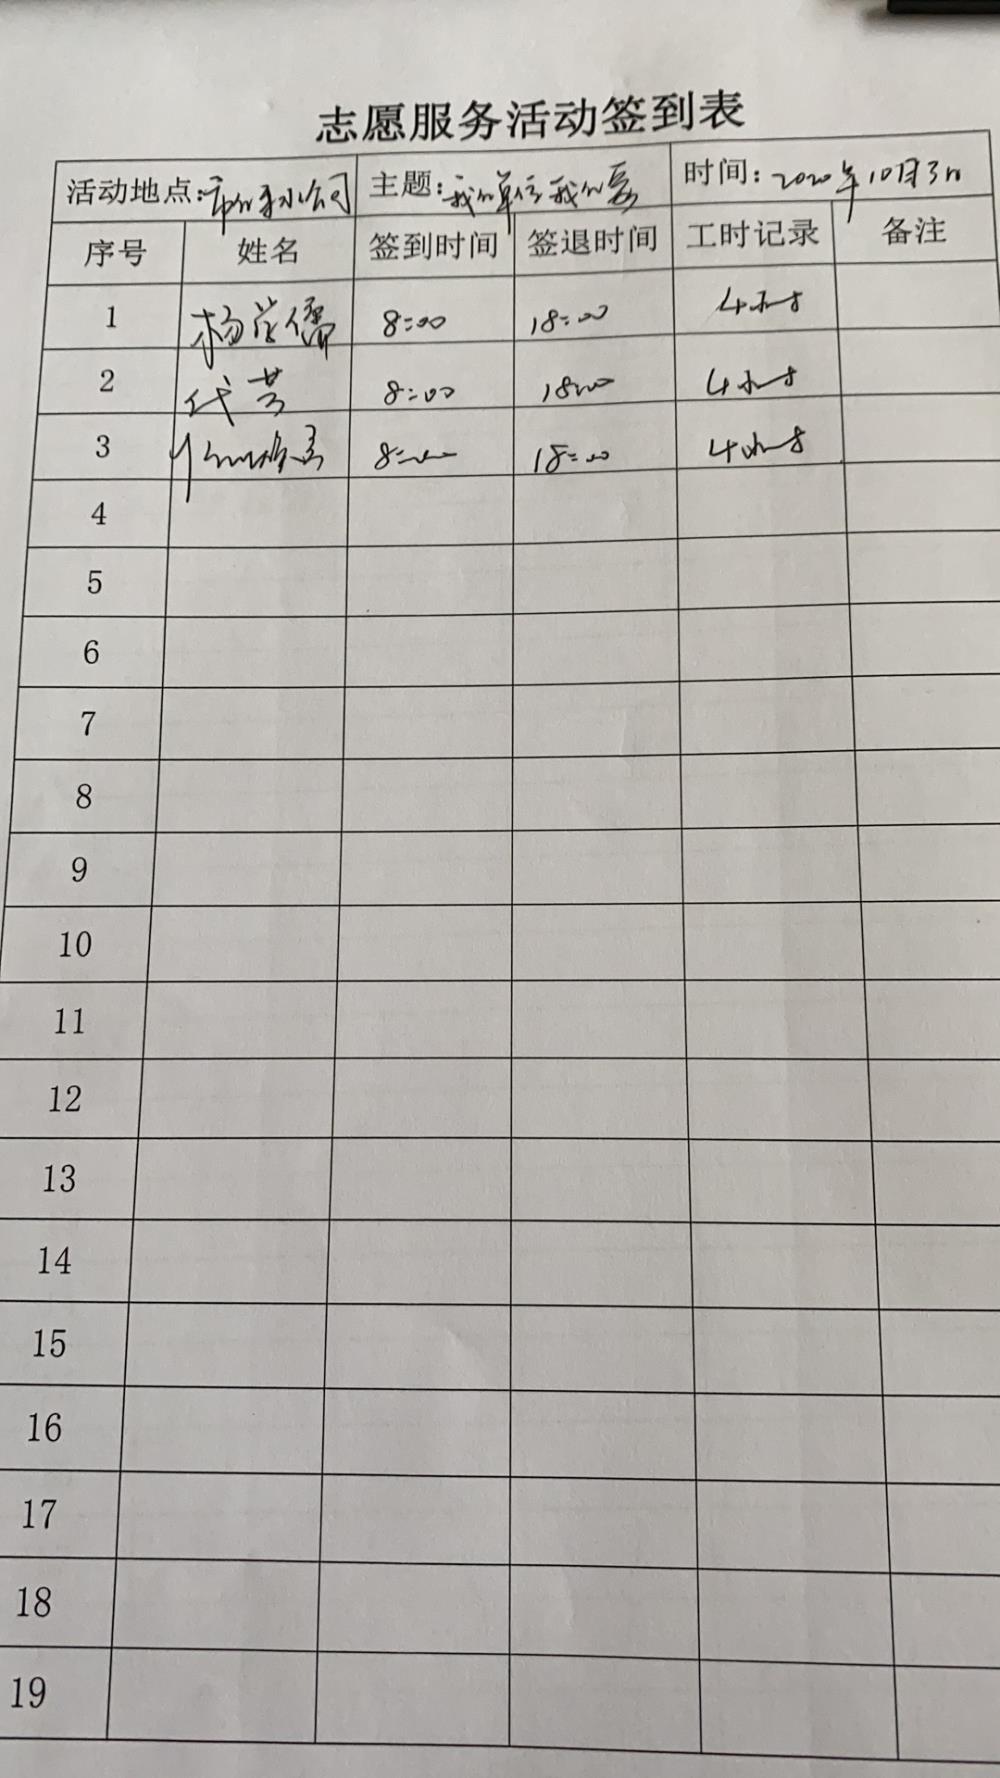 志愿服务活动签到表
活动地点: 主题:我的单位我的家 时间:2020年10月3日
序号 姓名 签到时间 签退时间 工时记录 备注
1 杨 8:00 18:00 4小时
2 代芳 8:00 18:00 4小时
3 8:00 18:00 4小时
4
5
6
7
8
9
10
11
12
13
14
15
16
17
18
19